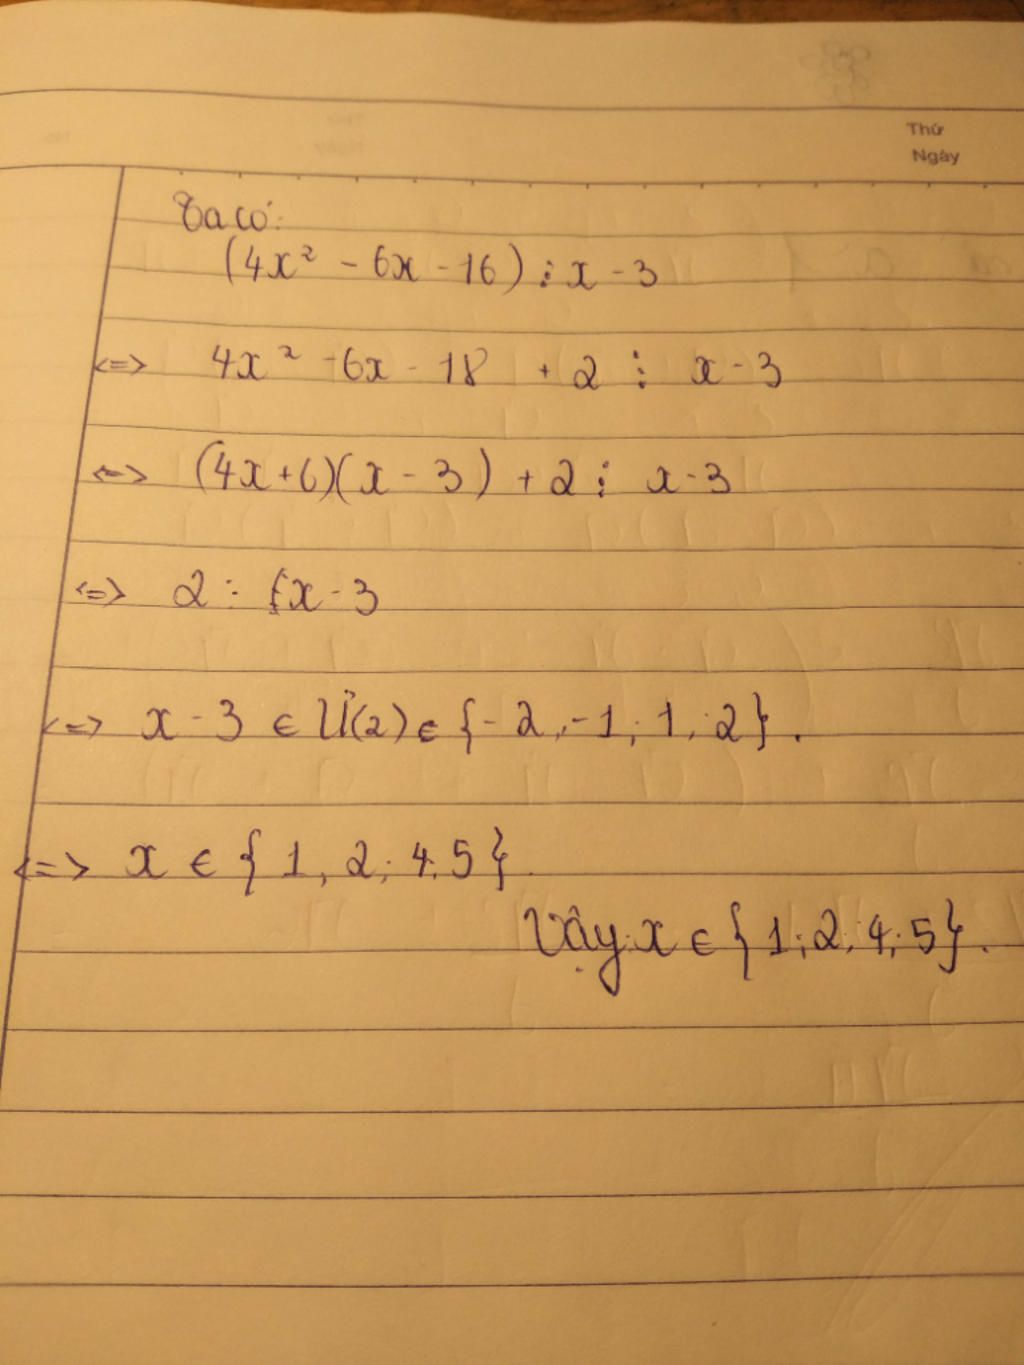 Thứ
Ngày
Ta có:
(4x² - 6x - 16) ⋮ x - 3
<=> 4x² - 6x - 18 + 2 ⋮ x - 3
<=> (4x + 6)(x - 3) + 2 ⋮ x - 3
<=> 2 ⋮ x - 3
<=> x - 3 ∈ Ư(2) ∈ {-2, -1; 1; 2}.
<=> x ∈ {1, 2; 4; 5}.
Vậy x ∈ {1; 2; 4; 5}.